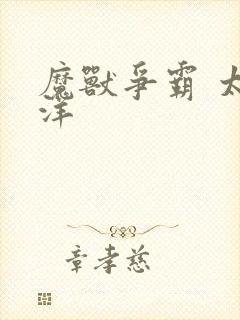 魔獸爭霸 太
洋
章孝慈